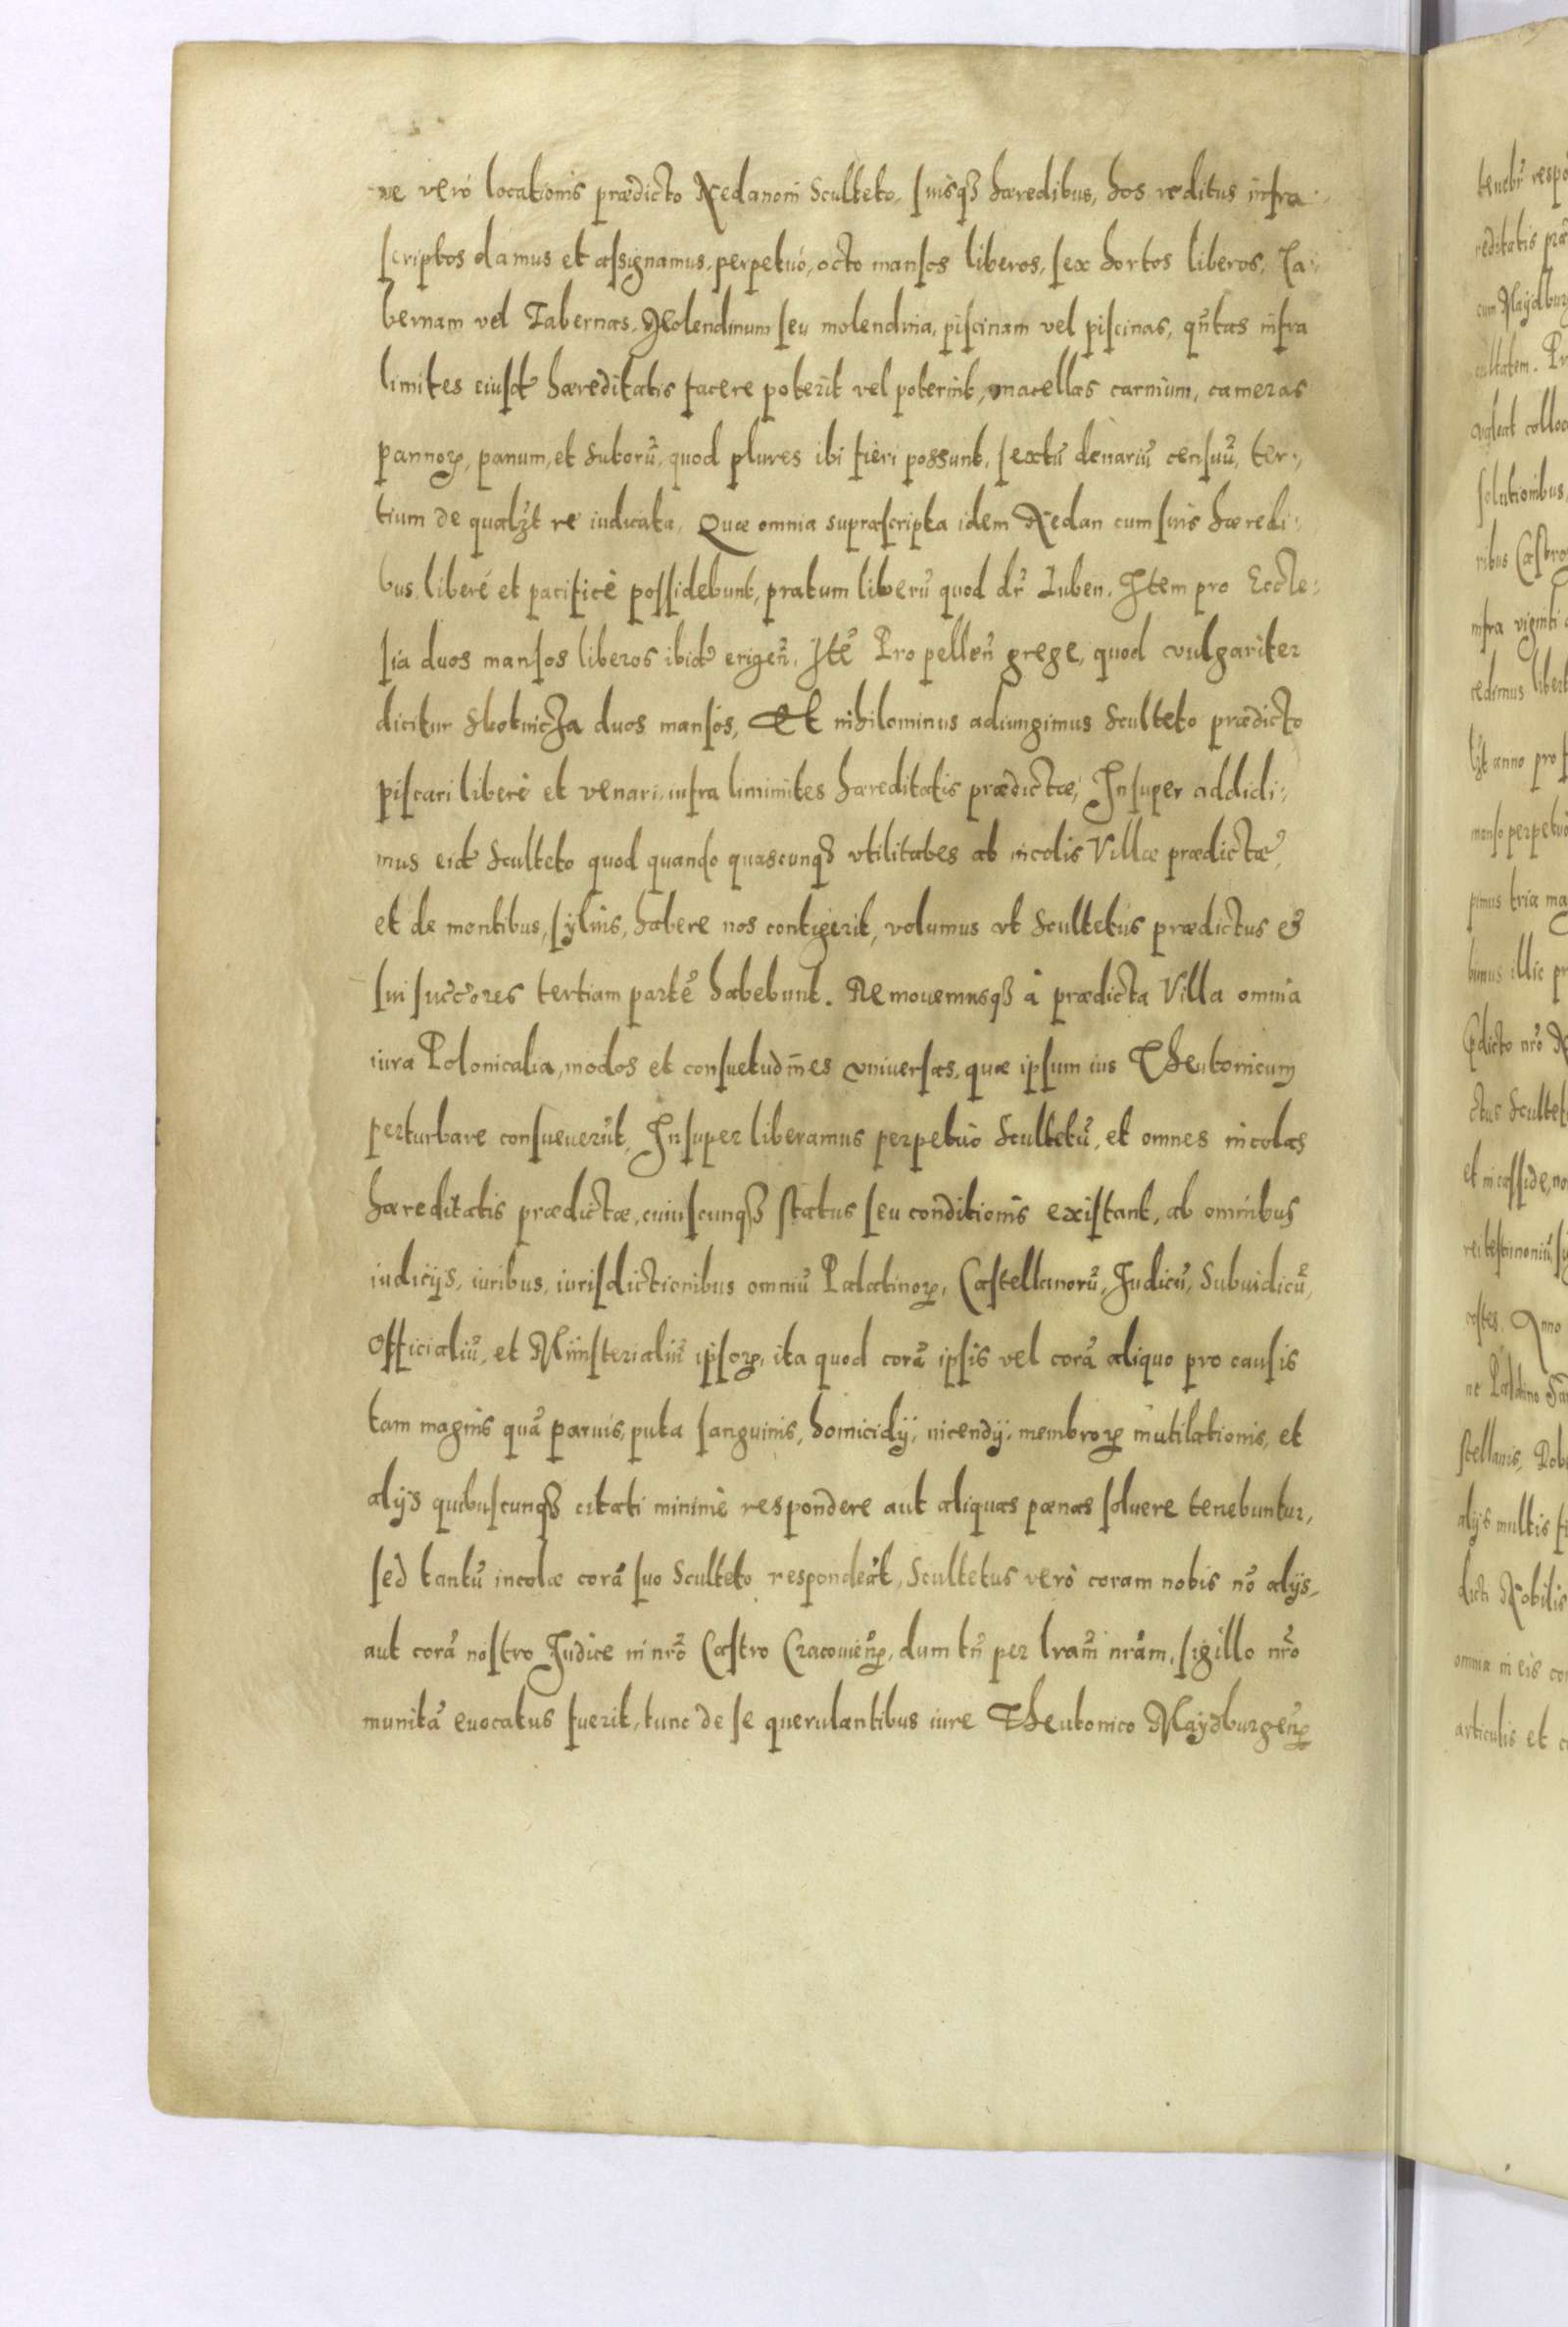 ne verò locationis prædicto Nedanoni Sculteto, suisqȝ hæredibus, hos reditus infra
scriptos damus et assignamus, perpetuò, octo mansos liberos, sex hortos liberos, Ta-
bernam vel Tabernas, Molendinum seu molendina, piscinam vel piscinas, qñtas infra
limites eiusd hæreditatis facere poterit vel poterint, macellas carnium, cameras
pannoꝝ, panum, et sutorũ, quod plures ibi fieri possunt, sextũ denariũ censuũ, ter-
tium de qualȝt re iudicata, Quæ omnia suprascripta idem Nedan cum suis hæredi-
bus, liberè et pacificè possidebunt, pratum liberũ quod dr̃ Luben. Item pro Eccle-
sia duos mansos liberos ibid erigeñ, Itẽ Pro pelleñ grege, quod vulgariter
dicitur Skotnicza duos mansos, Et nihilominus adiungimus Sculteto prædicto
piscari liberè et venari, infra liminites hæreditatis prædictæ, Insuper addidi-
mus eid Sculteto quod quando quascunqȝ vtilitates ab incolis Villæ prædictæ,
et de montibus, syluis, habere nos contigerit, volumus vt Scultetus prædictus &
sui succ̃ores tertiam partẽ habebunt. Remouemusqȝ à prædicta Villa omnia
iura Polonicalia, modos et consuetudīnes vniuersas, quæ ipsum ius Theutonicum
perturbare consueuerũt, Insuper liberamus perpetuò Scultetũ, et omnes incolas
hæreditatis prædictæ, cuiuscunqȝ status seu conditionis existant, ab omnibus
iudicijs, iuribus, iurisdictionibus omniũ Palatinoꝝ, Castellanorũ, Iudicũ, Subiudicũ,
Officialiũ, et Ministerialiũ ipsoꝝ, ita quod corã ipsis vel corã aliquo pro causis
tam magnis quã paruis, puta sanguinis, homicidij, incendij, membroꝝ mutilationis, et
alijs quibuscunqȝ citati minimè respondere aut aliquas pœnas soluere tenebuntur,
sed tantũ incolæ corã suo Sculteto respondeãt, Scultetus verò coram nobis nõ alijs,
aut corã nostro Iudice in nrõ Castro Cracouieñ, dum tñ per lrãm nrãm, sigillo nrõ
munitã euocatus fuerit, tunc de se querulantibus iure Theutonico Maydburgeñ